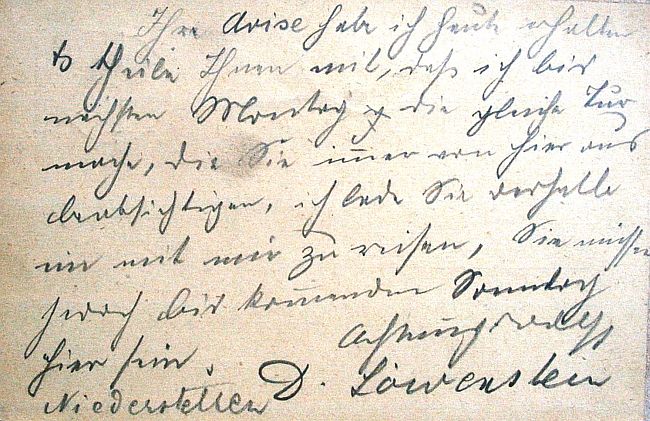 Ihre Avise habe ich heute erhalten
& theile Ihnen mit, daß ich bis
nächsten Montag die gleiche Tur
mache, die Sie immer von hier aus
beabsichtigen, ich lade Sie derhalb
ein mit mir zu reisen, Sie müssen
jedoch bis kommenden Sonntag
hier sein. Achtungsvoll
Niederstetten D. Löwenstein